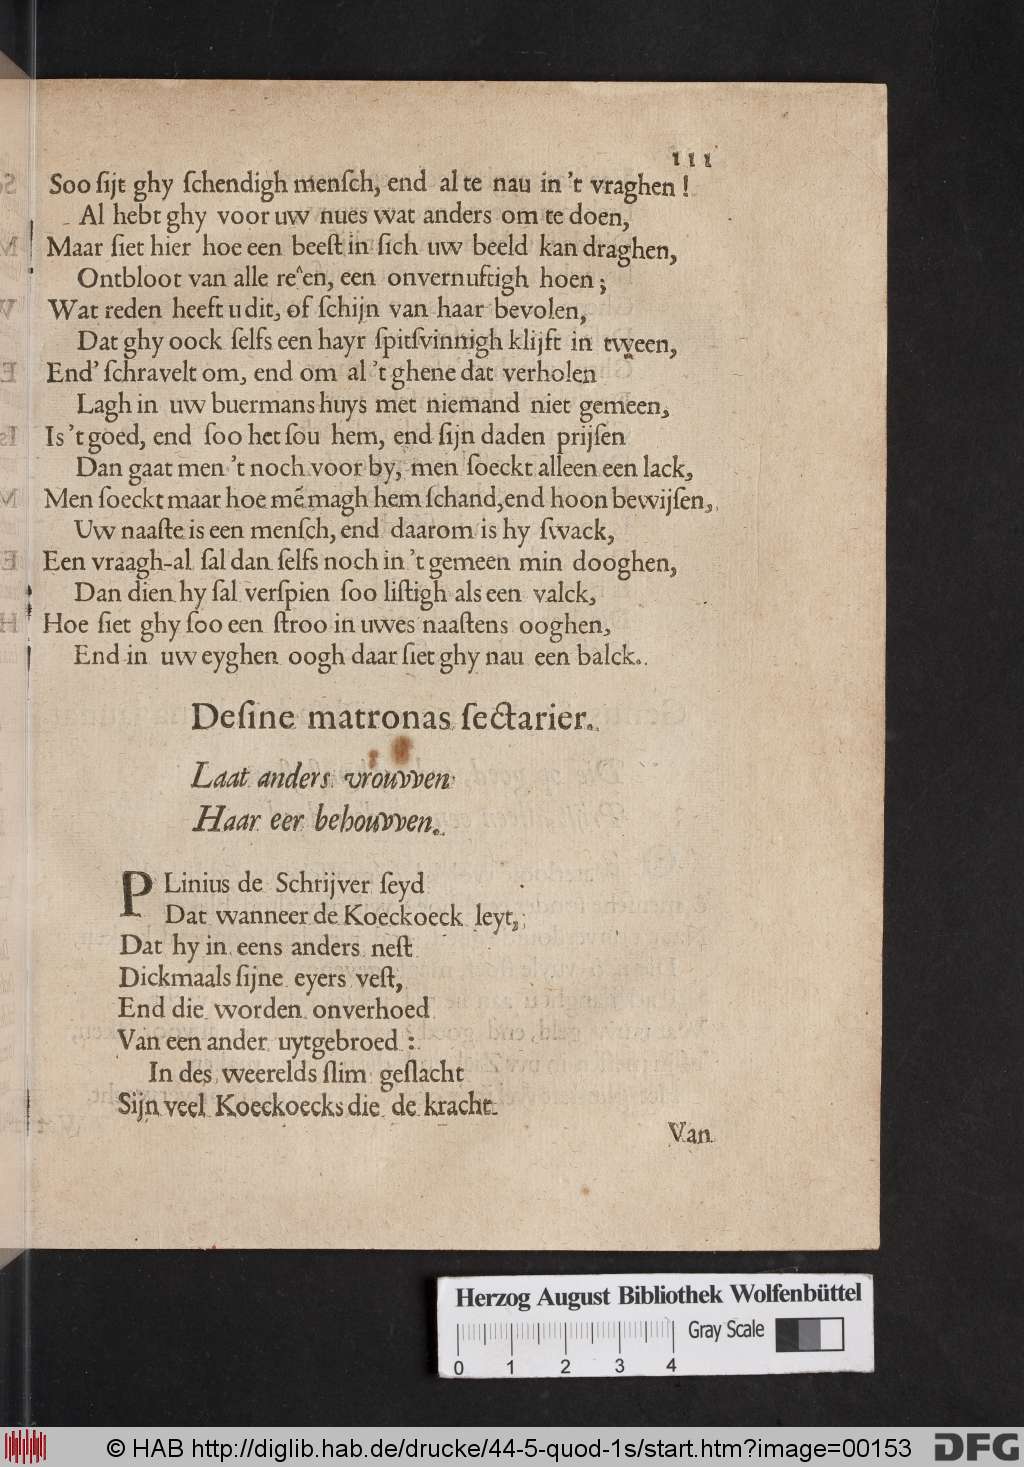 111
Soo ſijt ghy ſchendigh menſch, end al te nau in 't vraghen!
Al hebt ghy voor uw nues wat anders om te doen,
Maar ſiet hier hoe een beeſt in ſich uw beeld kan draghen,
Ontbloot van alle re^en, een onvernuftigh hoen;
Wat reden heeft u dit, of ſchijn van haar bevolen,
Dat ghy oock ſelfs een hayr ſpitſvinnigh klijft in tween,
End' ſchravelt om, end om al 't ghene dat verholen
Lagh in uw buermans huys met niemand niet gemeen,
Is 't goed, end ſoo het ſou hem, end ſijn daden prijſen
Dan gaat men 't noch voor by, men ſoeckt alleen een lack,
Men ſoeckt maar hoe mẽ magh hem ſchand, end hoon bewijſen,
Uw naaſte is een menſch, end daarom is hy ſwack,
Een vraagh-al ſal dan ſelfs noch in 't gemeen min dooghen,
Dan dien hy ſal verſpien ſoo liſtigh als een valck,
Hoe ſiet ghy ſoo een ſtroo in uwes naaſtens ooghen,
End in uw eyghen oogh daar ſiet ghy nau een balck.
Deſine matronas ſectarier.
Laat anders vrouwen
Haar eer behouwen.
PLinius de Schrijver ſeyd
Dat wanneer de Koeckoeck leyt,
Dat hy in eens anders neſt
Dickmaals ſijne eyers veſt,
End die worden onverhoed
Van een ander uytgebroed:
In des weerelds ſlim geſlacht
Sijn veel Koeckoecks die de kracht
Van
Herzog August Bibliothek Wolfenbüttel
Gray Scale
0 1 2 3 4
© HAB http://diglib.hab.de/drucke/44-5-quod-1s/start.htm?image=00153
DFG